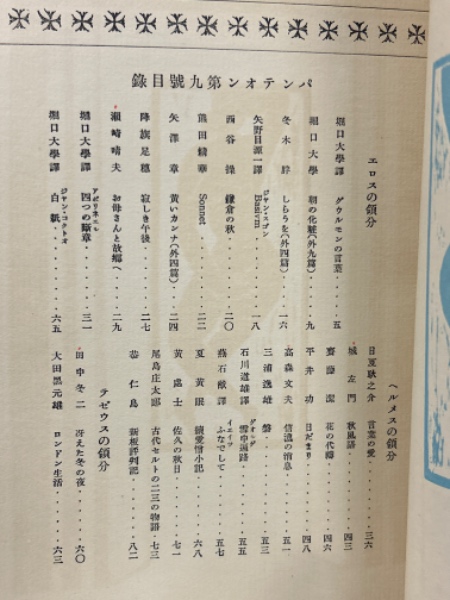 パンテオン第九號目錄
エロスの領分
堀口大學譯 グウルモンの言葉‥‥‥五
堀口大學 朝の化粧(外九篇)‥‥‥九
冬木 しらうを(外四篇)‥‥一六
矢野目源一譯 ‥‥一八
西谷操 鎌倉の秋‥‥‥二〇
熊田精華 Sonnet‥‥‥二二
矢澤章 黄いカンナ(外四篇)‥‥二四
陣旗足穗 寂しき午後‥‥‥二七
瀨崎晴夫 お母さんと故郷へ‥‥二九
堀口大學譯 アポリネエル 四つの斷章‥‥‥三一
堀口大學譯 ジャン・コクトオ 白紙‥‥‥六五
ヘルメスの領分
日夏耿之介 言葉の愛‥‥‥三六
城左門 秋風語‥‥‥四三
齋藤潔 花の代禱‥‥‥四六
平井功 日だまり‥‥‥四八
高森文夫 信濃の消息‥‥‥五一
三浦逸雄 ‥‥‥五三
石川道雄譯 雪中 ‥‥‥五五
燕石猷譯 イエイツ ふなでして‥‥‥五七
夏黄眠 續愛憎小記‥‥‥六八
黄 佐久の秋日‥‥‥七一
尾島庄太郎 古代セルトの二三の物語‥七三
恭仁鳥 新板評判記‥‥‥八二
テゼウスの領分
田中冬二 冴えた冬の夜‥‥‥六〇
大田黒元雄 ロンドン生活‥‥‥六三